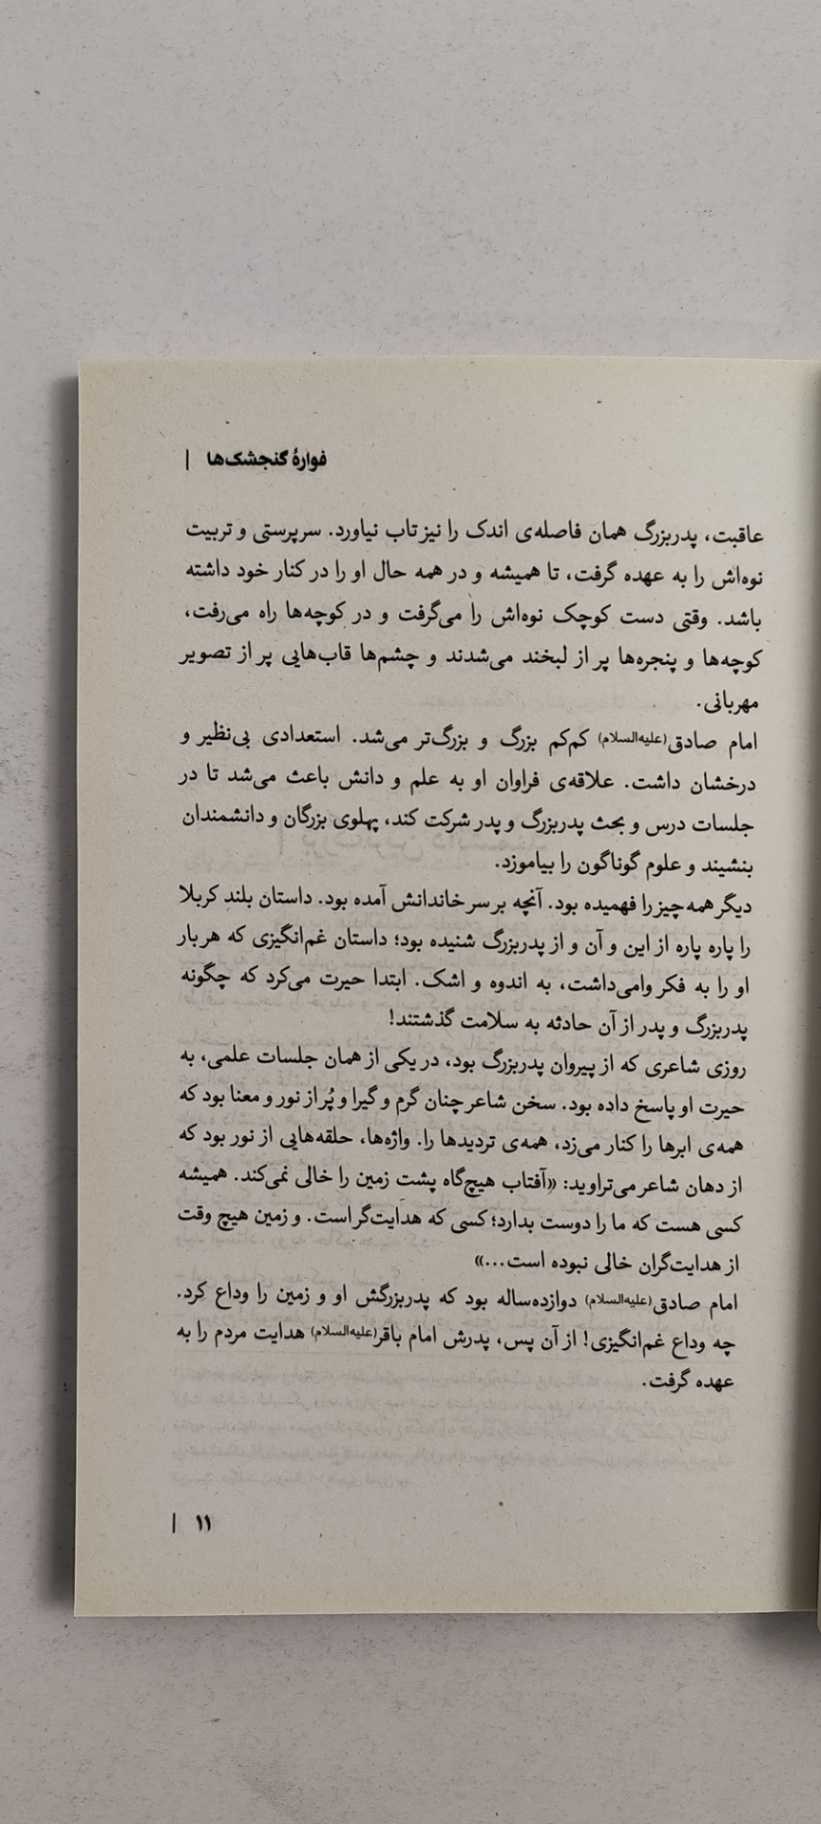 فوارهٔ گنجشک‌ها |
عاقبت، پدربزرگ همان فاصله‌ی اندک را نیز تاب نیاورد. سرپرستی و تربیت
نوه‌اش را به عهده گرفت، تا همیشه و در همه حال او را در کنار خود داشته
باشد. وقتی دست کوچک نوه‌اش را می‌گرفت و در کوچه‌ها راه می‌رفت،
کوچه‌ها و پنجره‌ها پر از لبخند می‌شدند و چشم‌ها قاب‌هایی پر از تصویر
مهربانی.
امام صادق(علیه‌السلام) کم‌کم بزرگ و بزرگ‌تر می‌شد. استعدادی بی‌نظیر و
درخشان داشت. علاقه‌ی فراوان او به علم و دانش باعث می‌شد تا در
جلسات درس و بحث پدربزرگ و پدر شرکت کند، پهلوی بزرگان و دانشمندان
بنشیند و علوم گوناگون را بیاموزد.
دیگر همه چیز را فهمیده بود. آنچه بر سر خاندانش آمده بود. داستان بلندِ کربلا
را پاره پاره از این و آن و از پدربزرگ شنیده بود؛ داستان غم‌انگیزی که هر بار
او را به فکر وامی‌داشت، به اندوه و اشک. ابتدا حیرت می‌کرد که چگونه
پدربزرگ و پدر از آن حادثه به سلامت گذشتند!
روزی شاعری که از پیروان پدربزرگ بود، در یکی از همان جلسات علمی، به
حیرت او پاسخ داده بود. سخن شاعر چنان گرم و گیرا و پُر از نور و معنا بود که
همه‌ی ابرها را کنار می‌زد، همه‌ی تردیدها را. واژه‌ها، حلقه‌هایی از نور بود که
از دهان شاعر می‌تراوید: «آفتاب هیچ‌گاه پشت زمین را خالی نمی‌کند. همیشه
کسی هست که ما را دوست بدارد؛ کسی که هدایت‌گر است. و زمین هیچ وقت
از هدایت‌گران خالی نبوده است...»
امام صادق(علیه‌السلام) دوازده‌ساله بود که پدربزرگش او و زمین را وداع کرد.
چه وداع غم‌انگیزی! از آن پس، پدرش امام باقر(علیه‌السلام) هدایت مردم را به
عهده گرفت.
۱۱ |